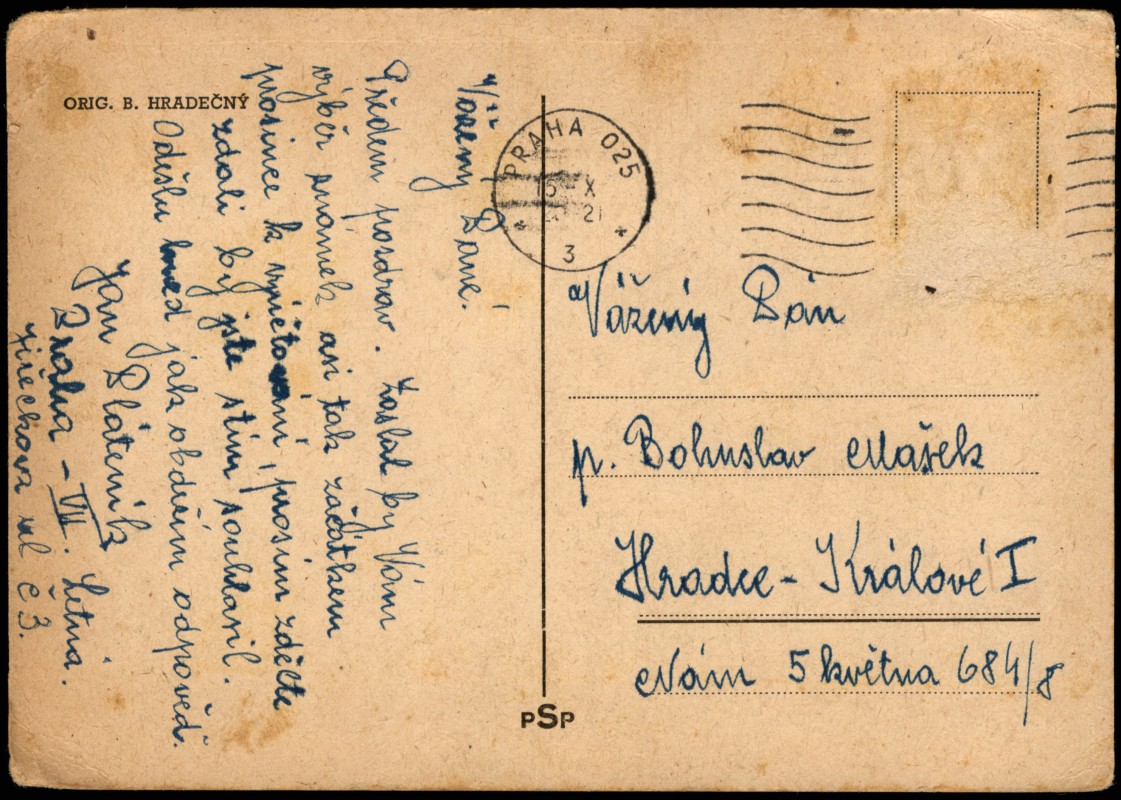 ORIG. B. HRADEČNÝ
Vážený Pane!
Předem pozdrav. Zaslal by Vám
výběr známek asi tak začátkem
prosince k vyúčtování, prosím zdělte
zdali by jste stím souhlasil.
Odešlu hned jak obdržím odpověď.
Jan Blátenik
Praha - VII. Letná.
Jirečkova ul č 3.
PRAHA 025
3
Vážený Pán
p. Bohuslav Mašek
Hradec - Králové I
Nám 5 května 684/8
PSP